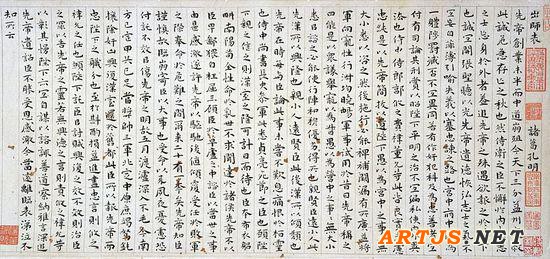 出師表 諸葛孔明
先帝創業未半而中道崩殂今天下三分益州疲
弊此誠危急存亡之秋也然侍衛之臣不懈於內忠志
之士忘身於外者蓋追先帝之殊遇欲報之於陛下
也誠宜開張聖聽以光先帝遺德恢弘志士之氣不
宜妄自菲薄引喻失義以塞忠諫之路也宮中府中俱為
一體陟罰臧否不宜異同若有作奸犯科及為忠善者宜
付有司論其刑賞以昭陛下平明之治不宜偏私使內外異
法也侍中侍郎郭攸之費禕董允等此皆良實志慮
忠純是以先帝簡拔以遺陛下愚以為宮中之事事無
大小悉以咨之然後施行必能裨補闕漏有所廣益將
軍向寵性行淑均曉暢軍事試用於昔日先帝稱之
曰能是以眾議舉寵為督愚以為營中之事事無大小
悉諮之必能使行陣和穆優劣得所也親賢臣遠小人此
先漢所以興隆也親小人遠賢臣此後漢所以傾頹也
先帝在時每與臣論此事未嘗不歎息痛恨於桓靈
也侍中尚書長史參軍此悉貞亮死節之臣也願陛
下親之信之則漢室之隆可計日而待也臣本布衣躬
耕南陽苟全性命於亂世不求聞達於諸侯先帝不以
臣卑鄙猥自枉屈三顧臣於草廬之中諮臣以當世之事
由是感激遂許先帝以驅馳後值傾覆受任於敗軍
之際奉命於危難之間爾來二十有一年矣先帝知臣
謹慎故臨崩寄臣以大事也受命以來夙夜憂慮恐
付託不效以傷先帝之明故五月渡瀘深入不毛今南
方已定甲兵已足當獎帥三軍北定中原庶竭駑鈍
攘除奸凶興復漢室還於舊都此臣所以報先帝而
忠陛下之職分也至於斟酌損益進盡忠言則攸之
禕允之任也願陛下託臣以討賊興復之效不效則治臣
之罪以告先帝之靈若無興德之言則責攸之禕允等
咎以彰其慢陛下亦宜自謀以諮諏善道察納雅言深追
先帝遺詔臣不勝受恩感激今當遠離臨表涕泣不
知所云
ARTUS.NET